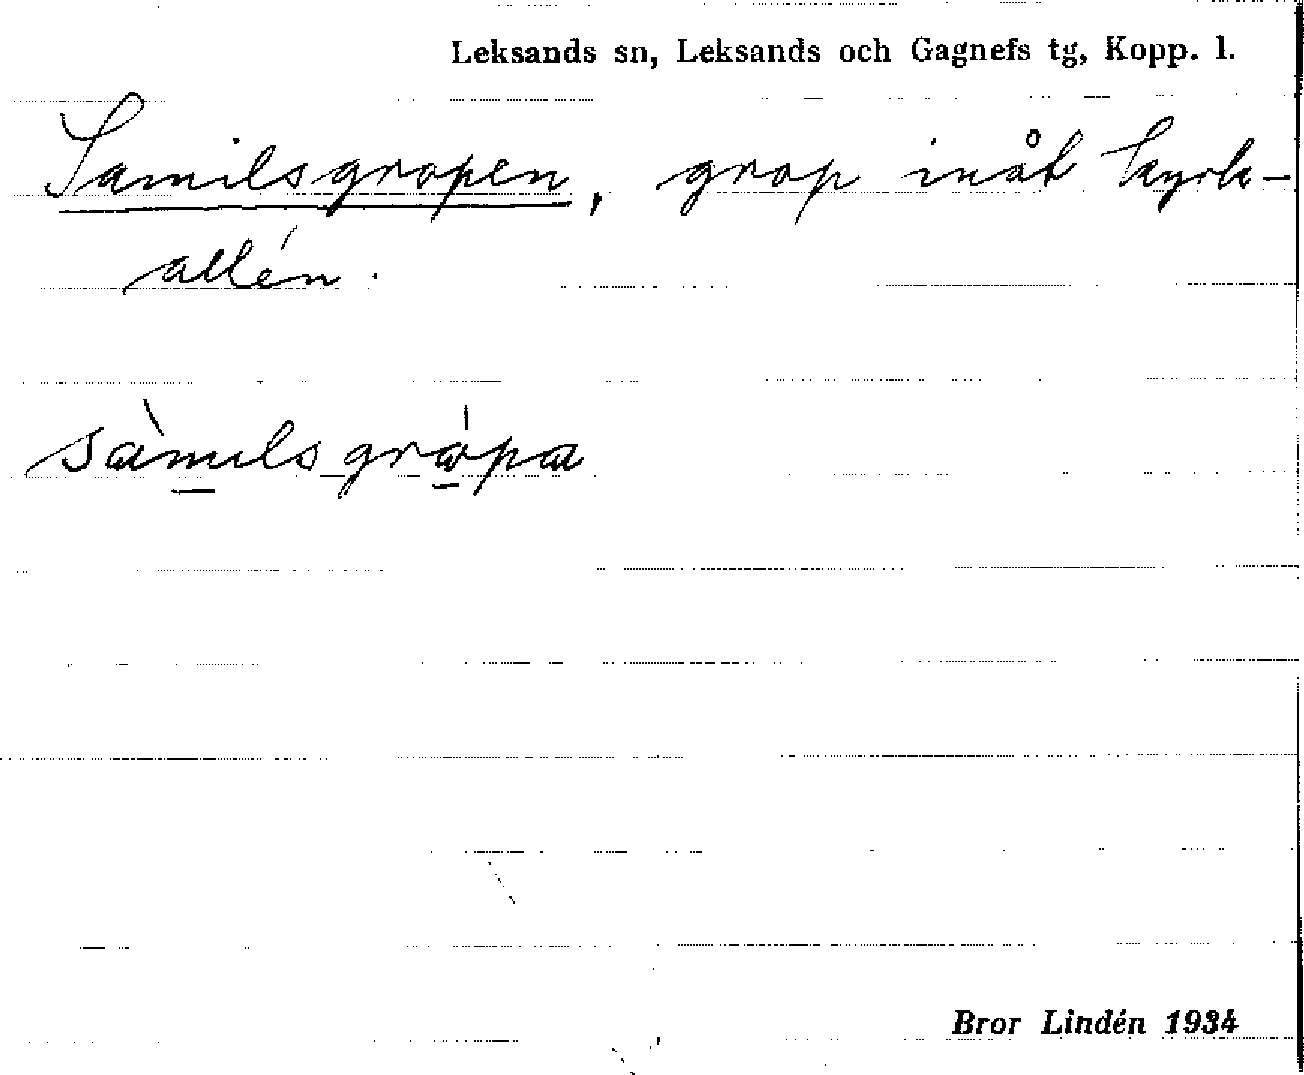 Leksands sn, Leksands och Gagnefs tg, Kopp. l.
Samilsgropen, grop inåt kyrk-
allén.
sàmilsgrȧpa
Bror Lindén 1934